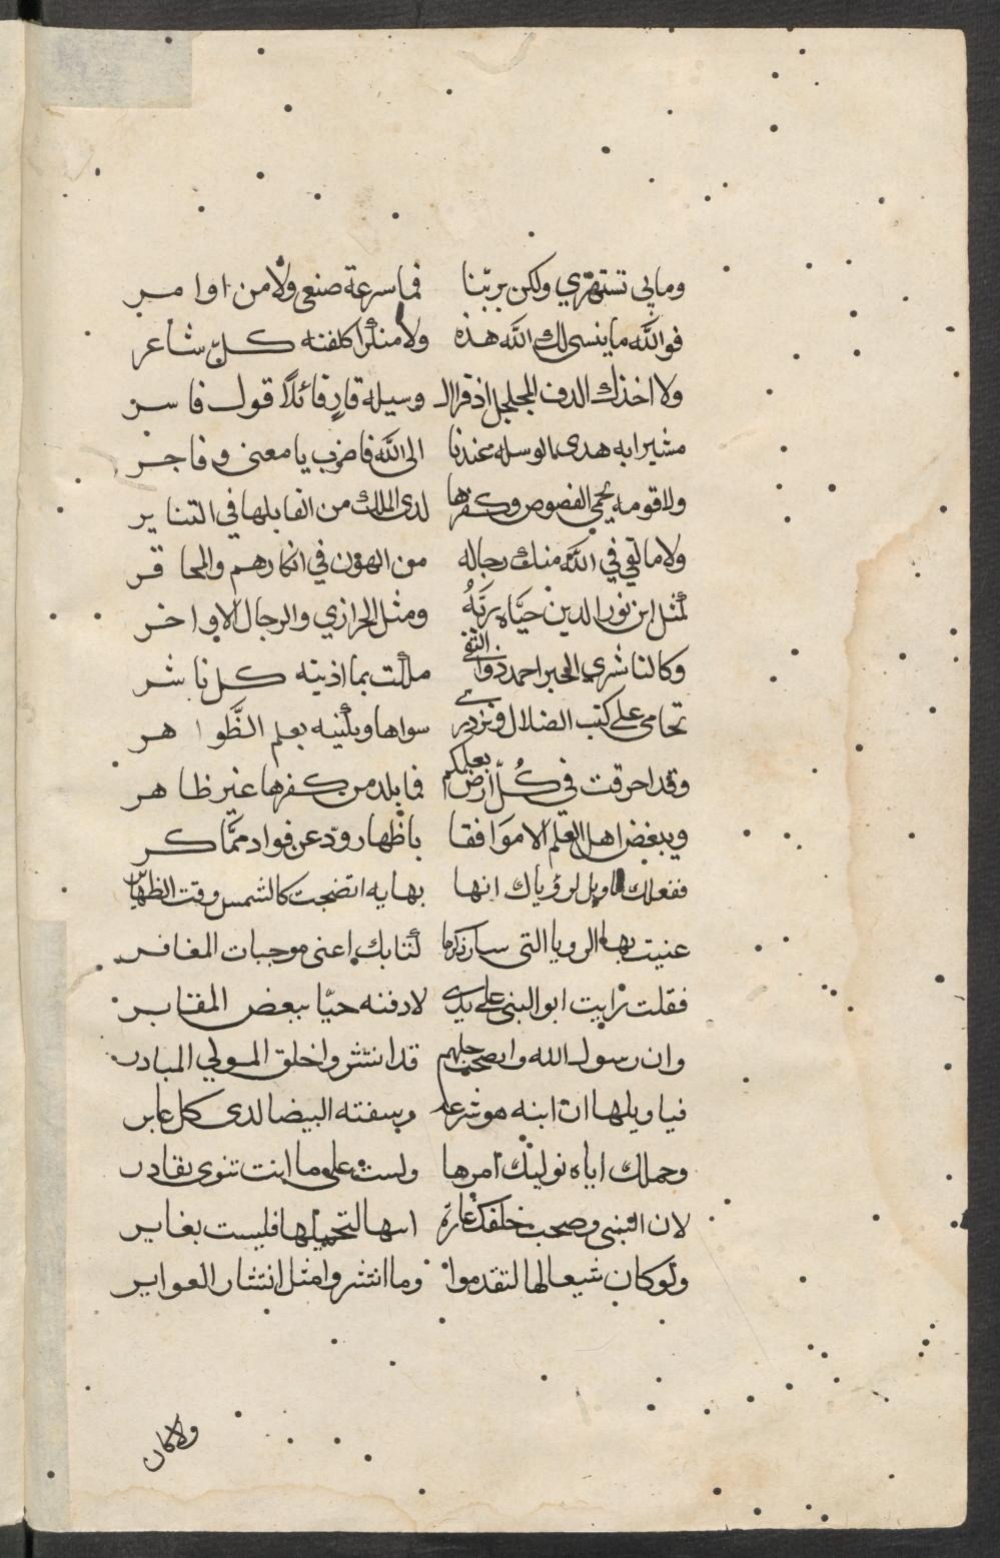 وما بي تستهزي ولكن بربّنا فما سرعة صنعي ولا من اوامر
فوالله ما ينسى لك الله هذه ولا منكرا كلفته كلّ شاعر
ولا اخذك الدف المجلجل اذ قرا الـ وسيلة قارٍ قائلاً قول فاسر
مشيرا به هدى الوسيله عندنا الى الله فاضرب يا معنى وفاجر
ولا قومه محي الفصوص وكفرها لدى الملك من القابلها في التنابير
ولا ما لقي في الله منك رجاله من الهون في انكارهم والمحاقر
لمثل ابن نور الدين حيّاه ربّهُ ومثل الحرازي والرجال الاواخر
وكالناشري الحبر احمد ذو التقى ملئت بما اذيته كل ناشر
تحامى على كتب الضلال وتزدري سواها وبلّنيه بعلم الظّواهر
وقد احرقت في كُلّ ارض بعلمكم فما بلد من كفرها غير ظاهر
ويبغض اهل العلم الا موافقا باظهار ودّ عن فواد مماكر
ففعلك تاويل لرؤياك انها بها يه اتضحت كالشمس وقت الظهاير
عنيت بها الرويا التي سارذكرها كتابك اعنى موجبات المغافر
فقلت رايت ابو البنى على يدي لادفنه حيّا ببعض المقابر
وان رسول الله واصحبا جلهم قد انتثروا خلق المولي المبادر
فيا ويلها ان ابنه موشرعه وسفته البيضا لدى كل عابر
وحملك اياه توليك امرها ولست على ما انت تنوى بقادر
لان النبي وصحبه خلفك غارة اسها لتحميلها فليست بغاير
ولو كان شيعا لها لتقدموا وما انتشروا مثل انتشار العوابر
ولا كان